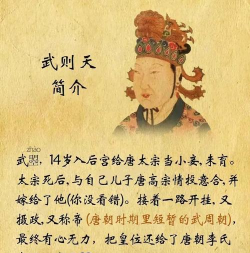 武则天
简介
zhào
武曌，14岁入后宫给唐太宗当小妾，未育。
太宗死后，与自己儿子唐高宗情投意合，并
嫁给了他(你没看错)。接着一路开挂，又
摄政，又称帝(唐朝时期里短暂的武周朝)，
最终有心无力，把皇位还给了唐朝李氏